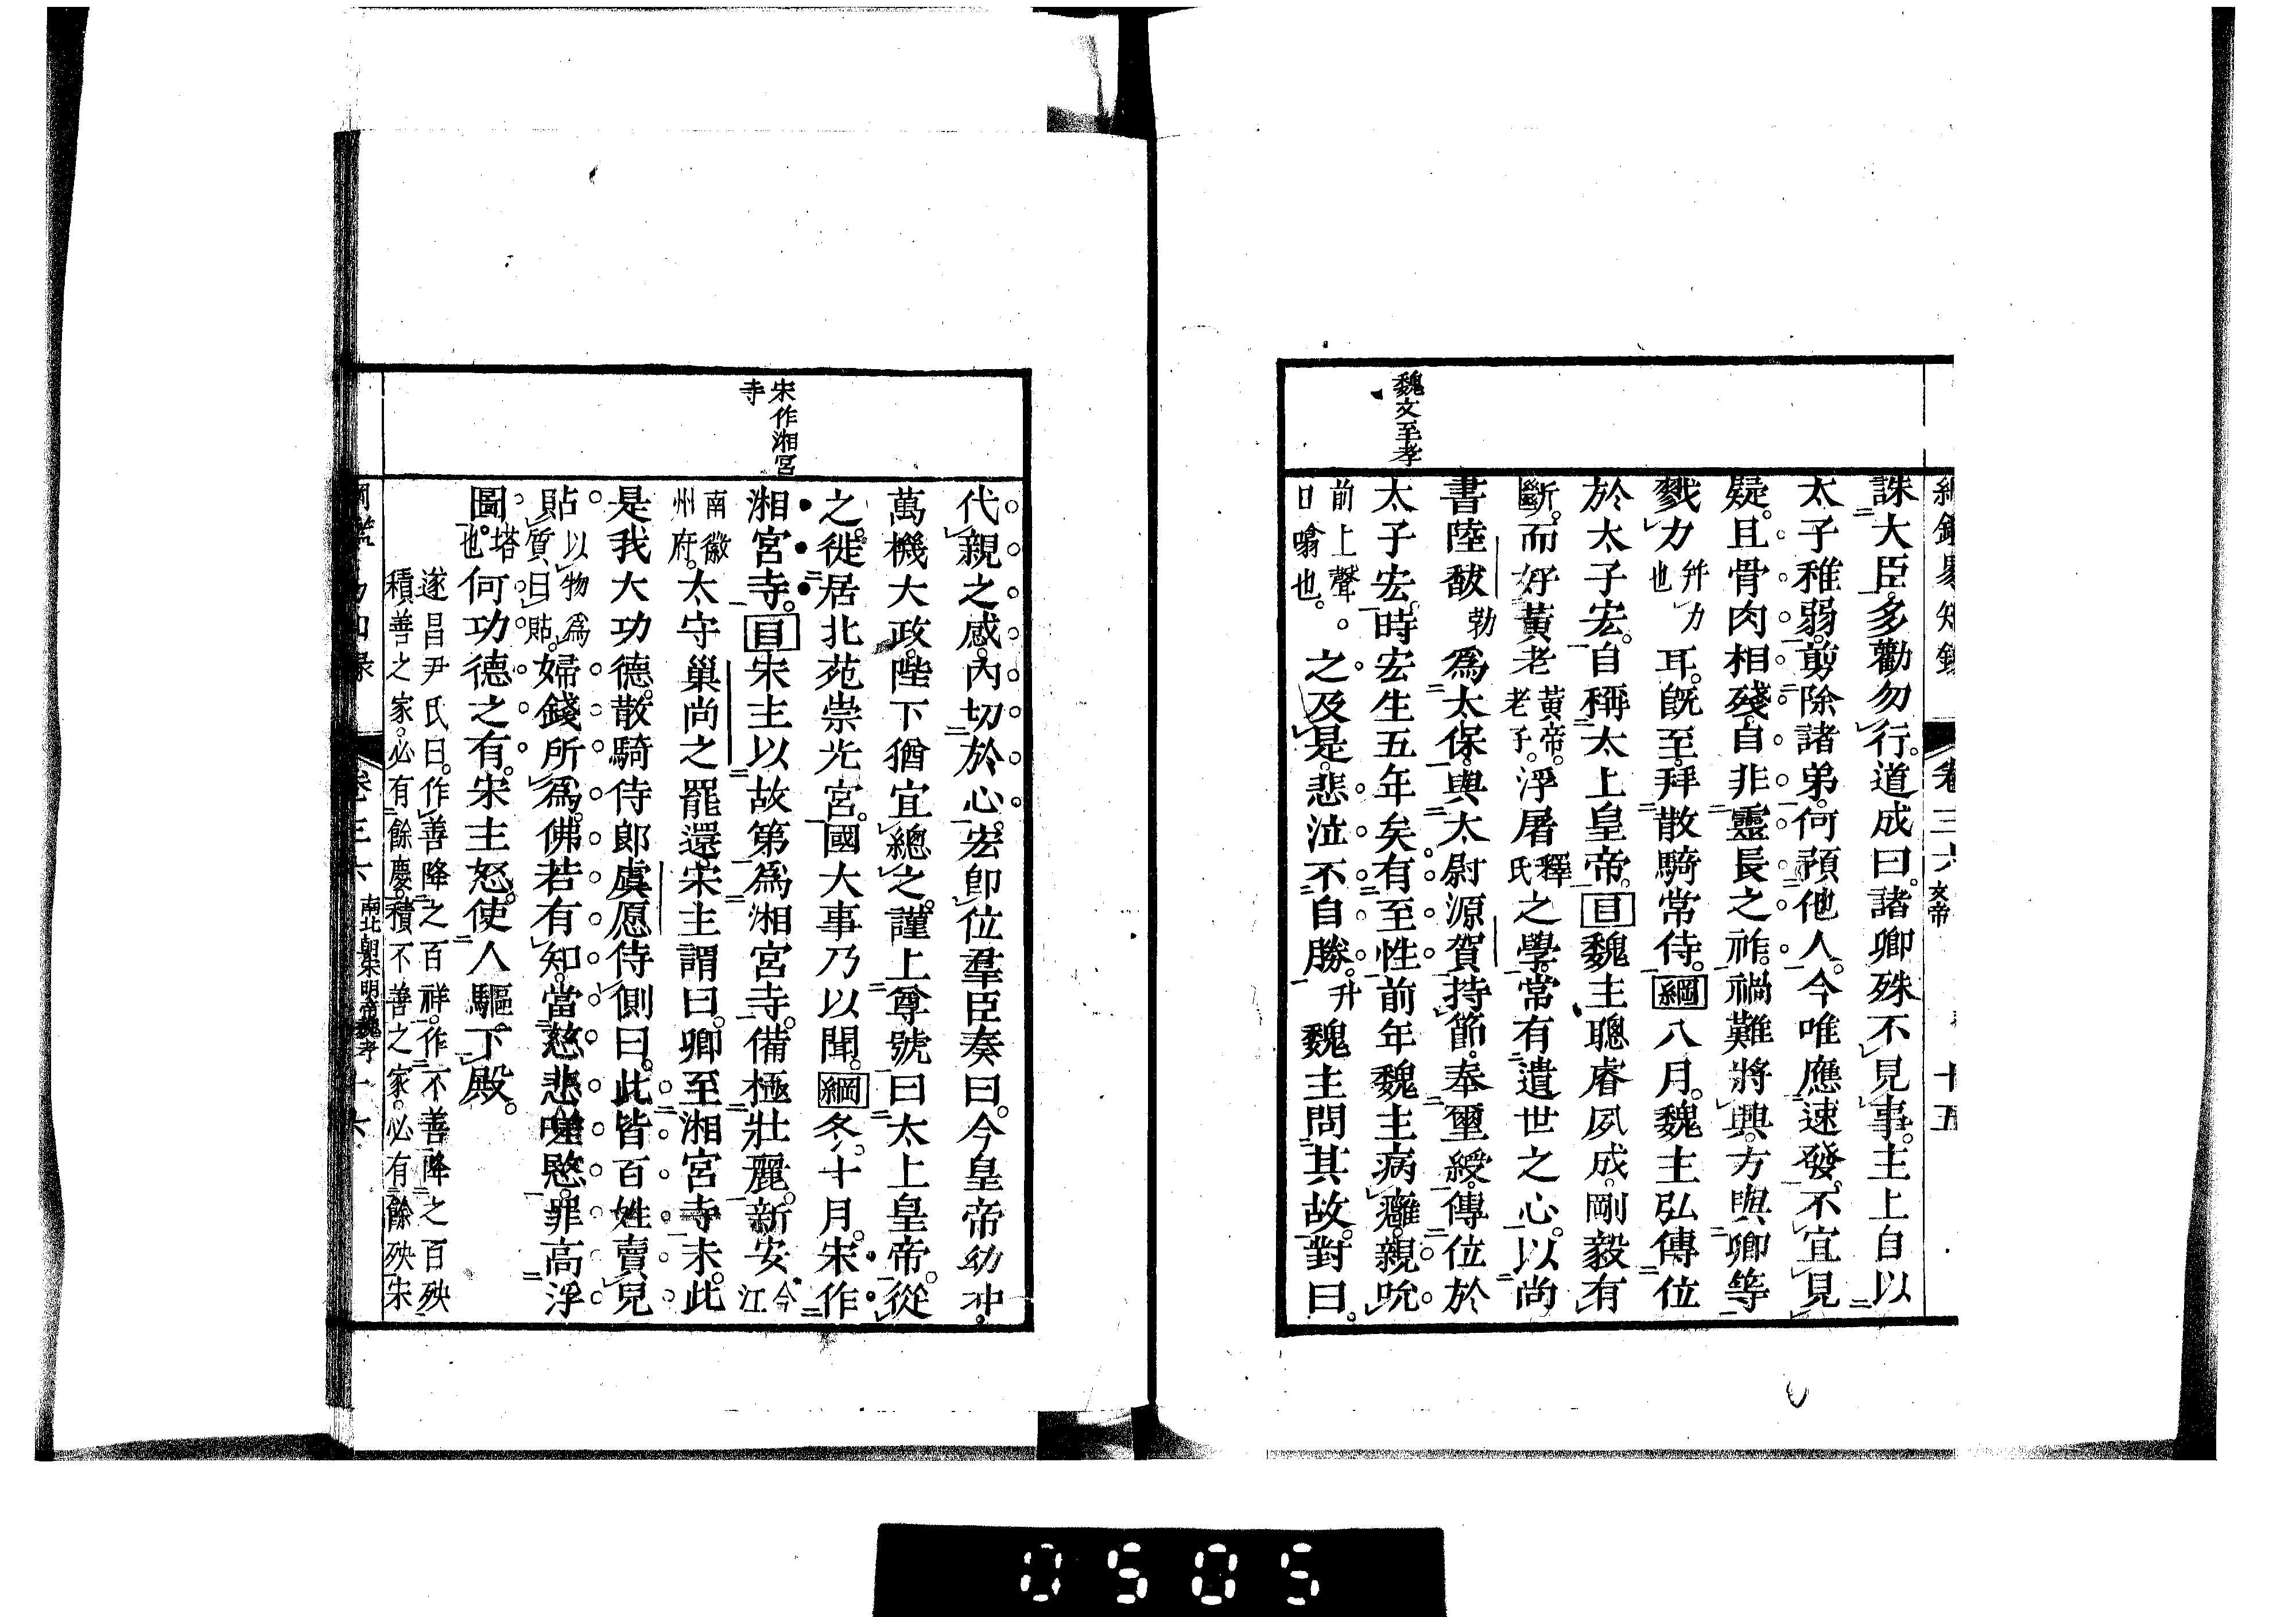 綱鑑易知錄 卷三六 文帝 十五
魏文至孝
誅大臣。多勸勿行。道成曰。諸卿殊不見事。主上自以
太子稚弱。剪除諸弟。何預他人。今唯應速發。不宜見
疑。且骨肉相殘。自非靈長之祚。禍難將興。方與卿等
戮力幷力也耳。既至。拜散騎常侍。綱八月。魏主弘傳位
於太子宏。自稱太上皇帝。目魏主聰睿夙成。剛毅有
斷。而好黃老黃帝。老子。浮屠釋氏之學。常有遺世之心。以尚
書陸馛勃爲太保。與太尉源賀持節。奉璽綬。傳位於
太子宏。時宏生五年矣。有至性。前年魏主病癰。親吮
前上聲。曰噏也。之。及是。悲泣不自勝。升魏主問其故。對曰。
宋作湘宮寺
代親之感。內切於心。宏卽位。羣臣奏曰。今皇帝幼冲。
萬機大政。陛下猶宜總之。謹上尊號曰太上皇帝。從
之。徙居北苑崇光宮。國大事乃以聞。綱冬。十月。宋作
湘宮寺。目宋主以故第爲湘宮寺。備極壯麗。新安今江
南徽州府。太守巢尚之罷還。宋主謂曰。卿至湘宮寺未。此
是我大功德。散騎侍郎虞愿侍側曰。此皆百姓賣兒
貼以物爲質曰貼。婦錢所爲。佛若有知。當慈悲嗟愍。罪高浮
圖。塔也。何功德之有。宋主怒。使人驅下殿。
遂昌尹氏曰。作善降之百祥。作不善降之百殃。
積善之家。必有餘慶。積不善之家。必有餘殃。宋
綱鑑易知錄 卷三六 南北朝宋明帝魏孝 十六
0505